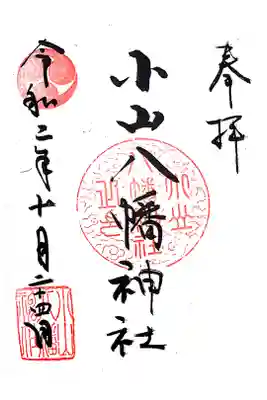 奉拝
小山八幡神社
令和二年十月二十四日